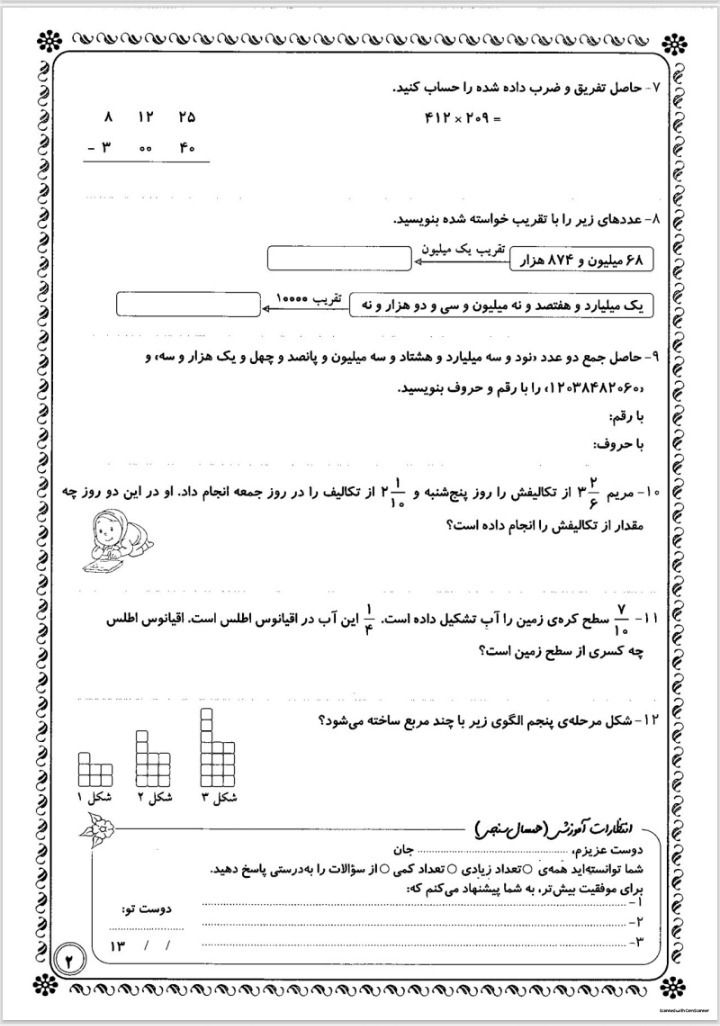 ۷- حاصل تفریق و ضرب داده شده را حساب کنید.
۸ ۱۲ ۲۵
- ۳ ۰۰ ۴۰
۴۱۲ × ۲۰۹ =
۸- عددهای زیر را با تقریب خواسته شده بنویسید.
۶۸ میلیون و ۸۷۴ هزار تقریب یک میلیون
یک میلیارد و هفتصد و نه میلیون و سی و دو هزار و نه تقریب ۱۰۰۰۰
۹- حاصل جمع دو عدد «نود و سه میلیارد و هشتاد و سه میلیون و پانصد و چهل و یک هزار و سه» و
«۱۲۰۳۸۴۸۲۰۶۰» را با رقم و حروف بنویسید.
با رقم:
با حروف:
۱۰- مریم ۳ ۲/۶ از تکالیفش را روز پنج‌شنبه و ۲ ۱/۱۰ از تکالیف را در روز جمعه انجام داد. او در این دو روز چه
مقدار از تکالیفش را انجام داده است؟
۱۱- ۷/۱۰ سطح کره‌ی زمین را آب تشکیل داده است. ۱/۴ این آب در اقیانوس اطلس است. اقیانوس اطلس
چه کسری از سطح زمین است؟
۱۲- شکل مرحله‌ی پنجم الگوی زیر با چند مربع ساخته می‌شود؟
شکل ۱ شکل ۲ شکل ۳
انتظارات آموزشی (همسال‌سنجی)
دوست عزیزم، .................... جان
شما توانسته‌اید همه‌ی ○ تعداد زیادی ○ تعداد کمی ○ از سؤالات را به‌درستی پاسخ دهید.
برای موفقیت بیش‌تر، به شما پیشنهاد می‌کنم که:
۱-
۲-
۳-
دوست تو:
۱۳ / /
۲
Scanned with CamScanner